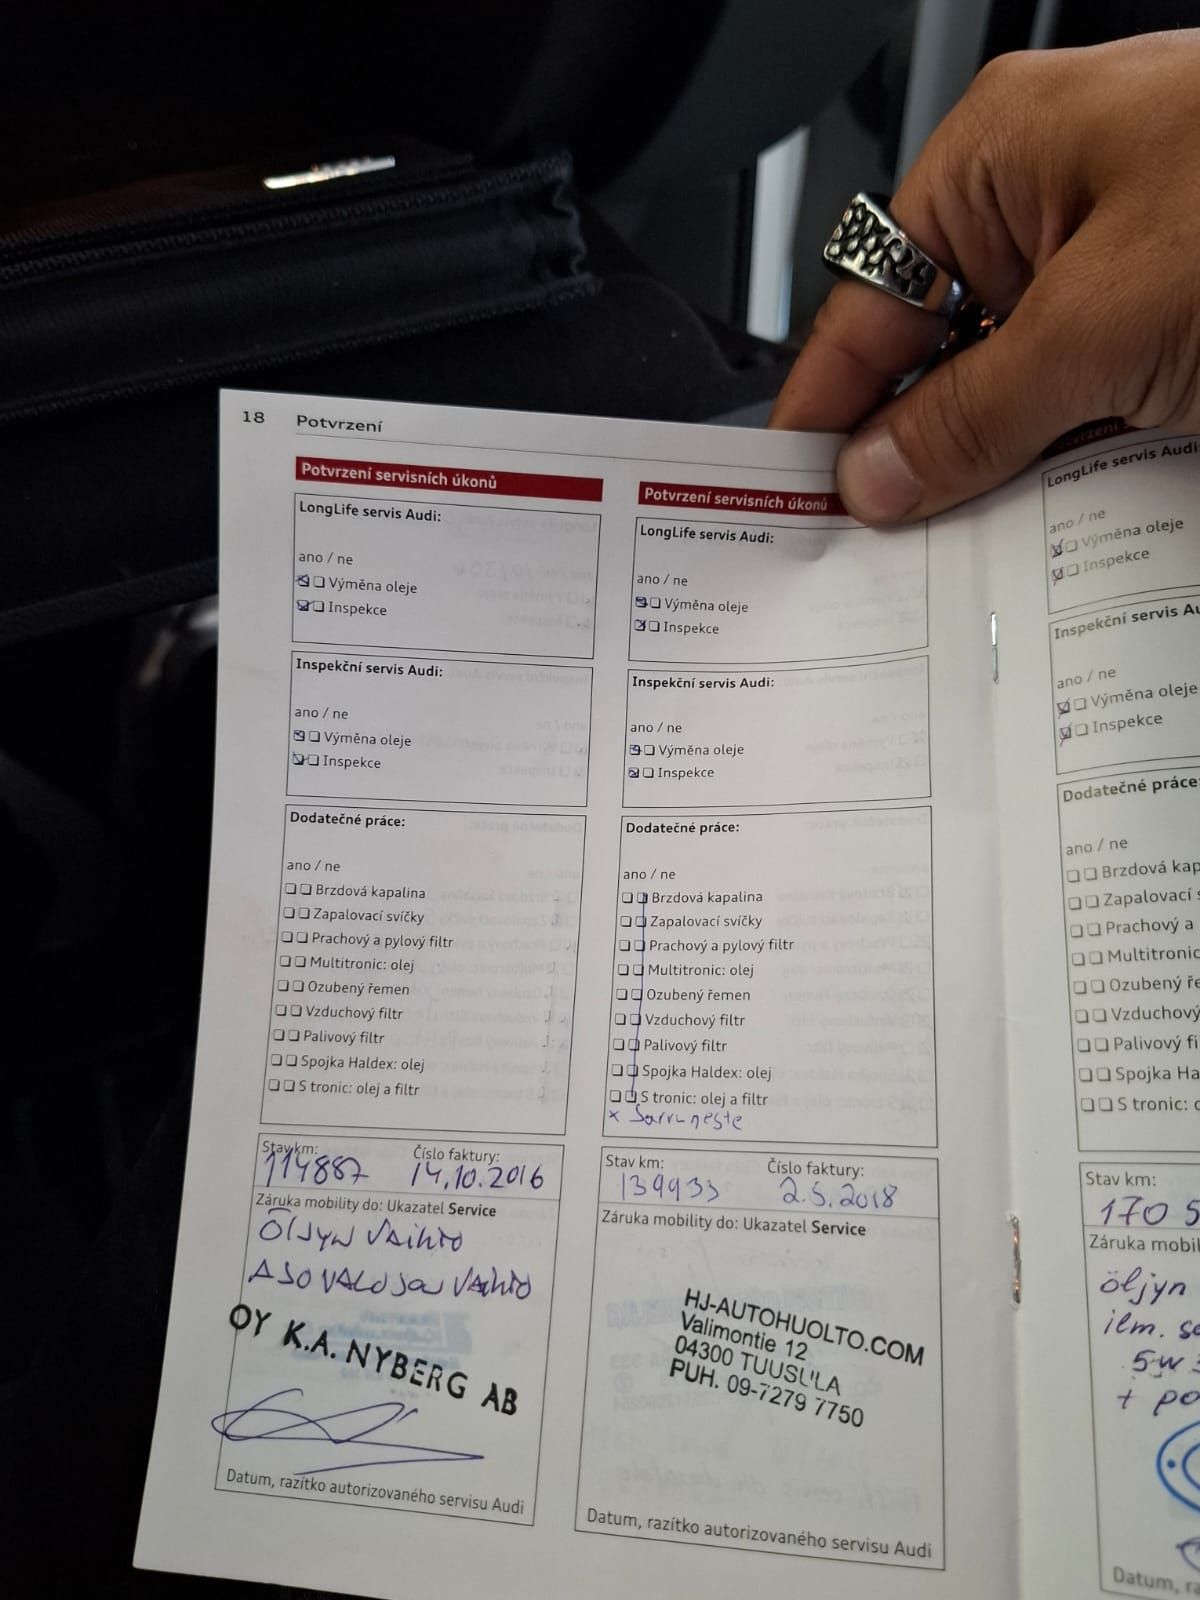 18 Potvrzení
Potvrzení servisních úkonů
LongLife servis Audi:
ano / ne
Výměna oleje
Inspekce
Inspekční servis Audi:
ano / ne
Výměna oleje
Inspekce
Dodatečné práce:
ano / ne
Brzdová kapalina
Zapalovací svíčky
Prachový a pylový filtr
Multitronic: olej
Ozubený řemen
Vzduchový filtr
Palivový filtr
Spojka Haldex: olej
S tronic: olej a filtr
Stav km: Číslo faktury:
114887 14.10.2016
Záruka mobility do: Ukazatel Service
Öljyn vaihto
OY K.A. NYBERG AB
Datum, razítko autorizovaného servisu Audi
Potvrzení servisních úkonů
LongLife servis Audi:
ano / ne
Výměna oleje
Inspekce
Inspekční servis Audi:
ano / ne
Výměna oleje
Inspekce
Dodatečné práce:
ano / ne
Brzdová kapalina
Zapalovací svíčky
Prachový a pylový filtr
Multitronic: olej
Ozubený řemen
Vzduchový filtr
Palivový filtr
Spojka Haldex: olej
S tronic: olej a filtr
x Jarruneste
Stav km: Číslo faktury:
139933 2.5.2018
Záruka mobility do: Ukazatel Service
HJ-AUTOHUOLTO.COM
Valimontie 12
04300 TUUSULA
PUH. 09-7279 7750
Datum, razítko autorizovaného servisu Audi
LongLife servis Audi:
ano / ne
Výměna oleje
Inspekce
Inspekční servis Au
ano / ne
Výměna oleje
Inspekce
Dodatečné práce:
ano / ne
Brzdová kap
Zapalovací s
Prachový a
Multitronic
Ozubený ře
Vzduchový
Palivový fi
Spojka Ha
S tronic: o
Stav km:
170 5
Záruka mobil
öljyn
ilm. s
5w
+ po
Datum, ra